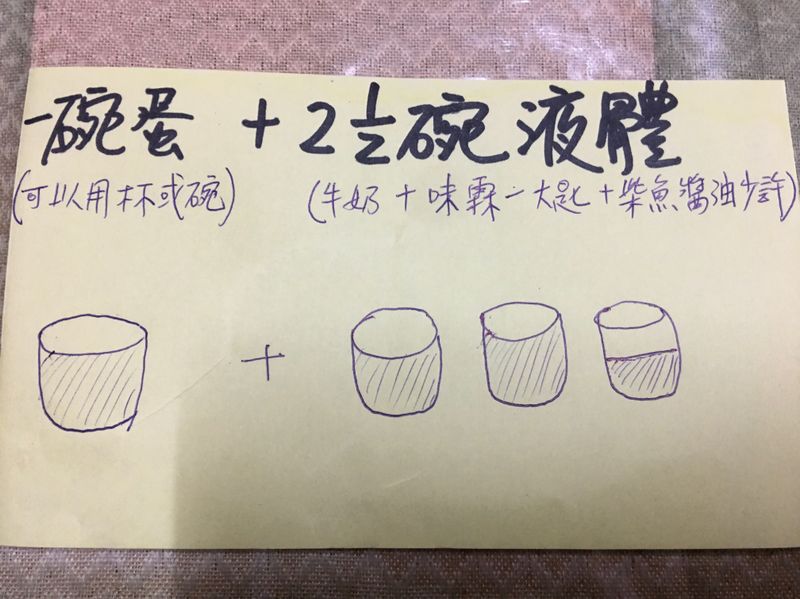 一碗蛋 + 2 1/2 碗液體
(可以用杯或碗) (牛奶+味霖一大匙+柴魚醬油少許)
+